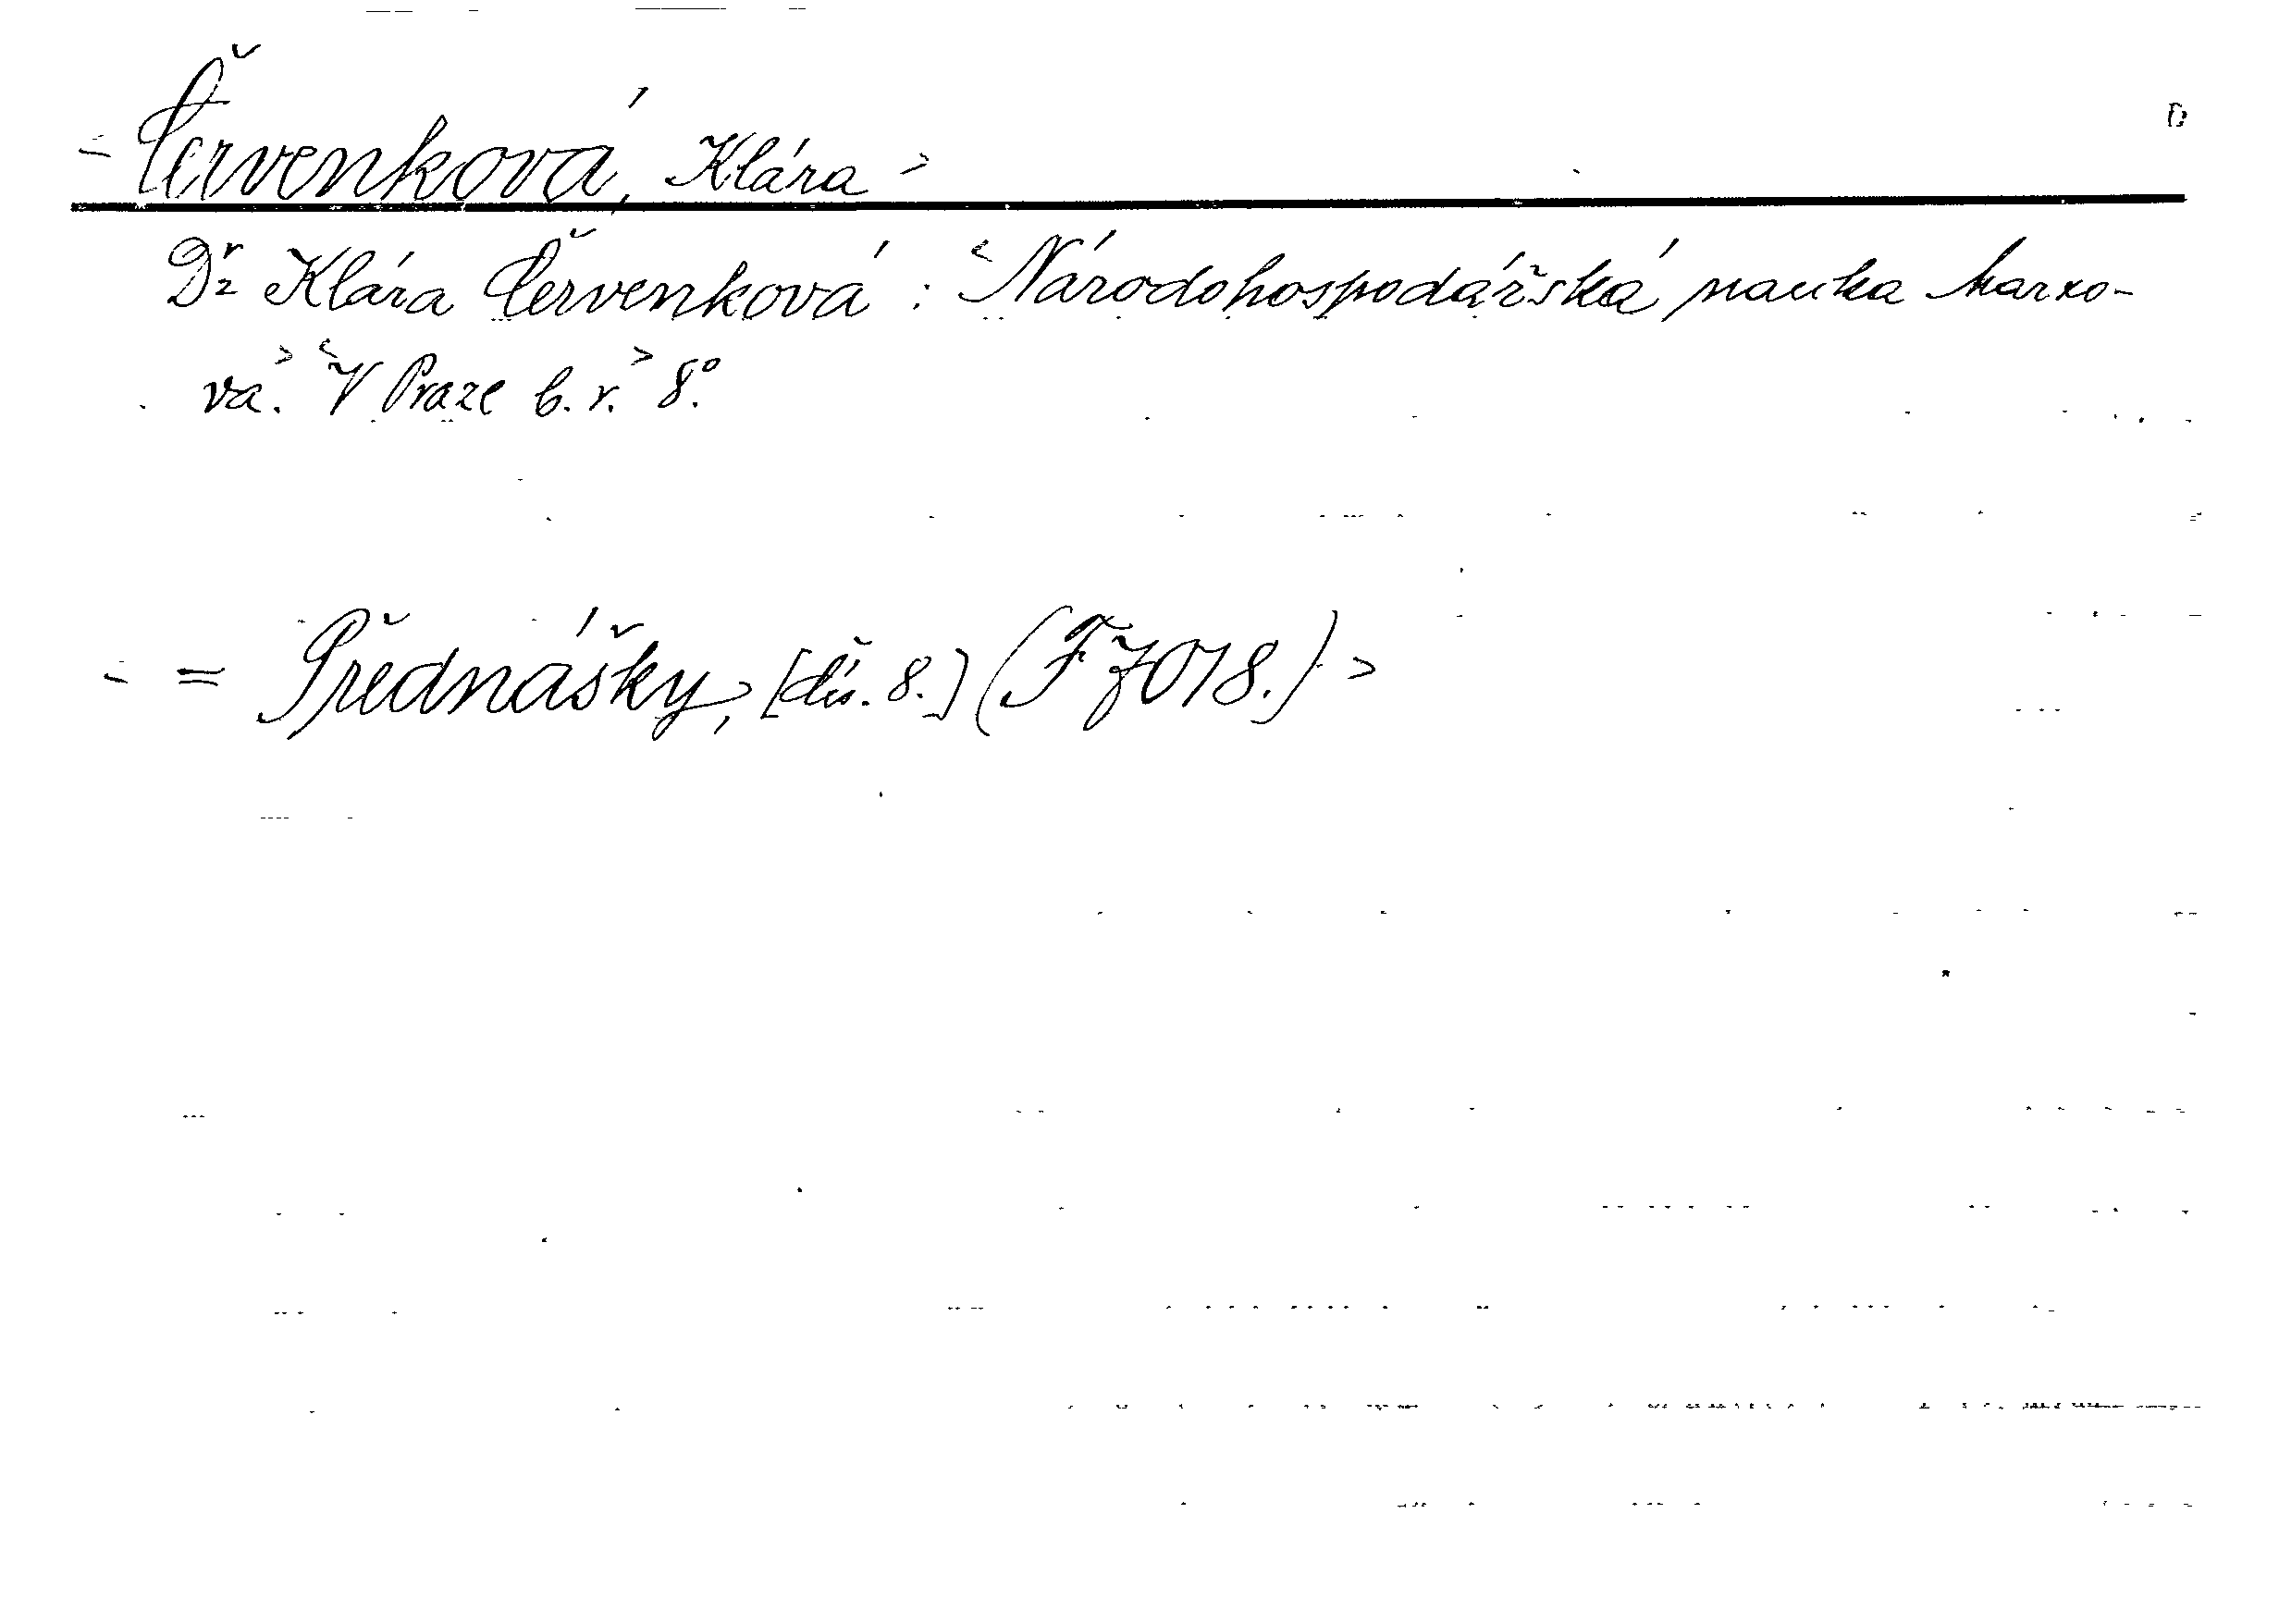 < Červenková, Klára >
Dr Klára Červenková: < Národohospodářská nauka Marxo-
va. > < V Praze b. r. > 8º.
< = Přednášky, [čís. 8.] (F 7018.) >